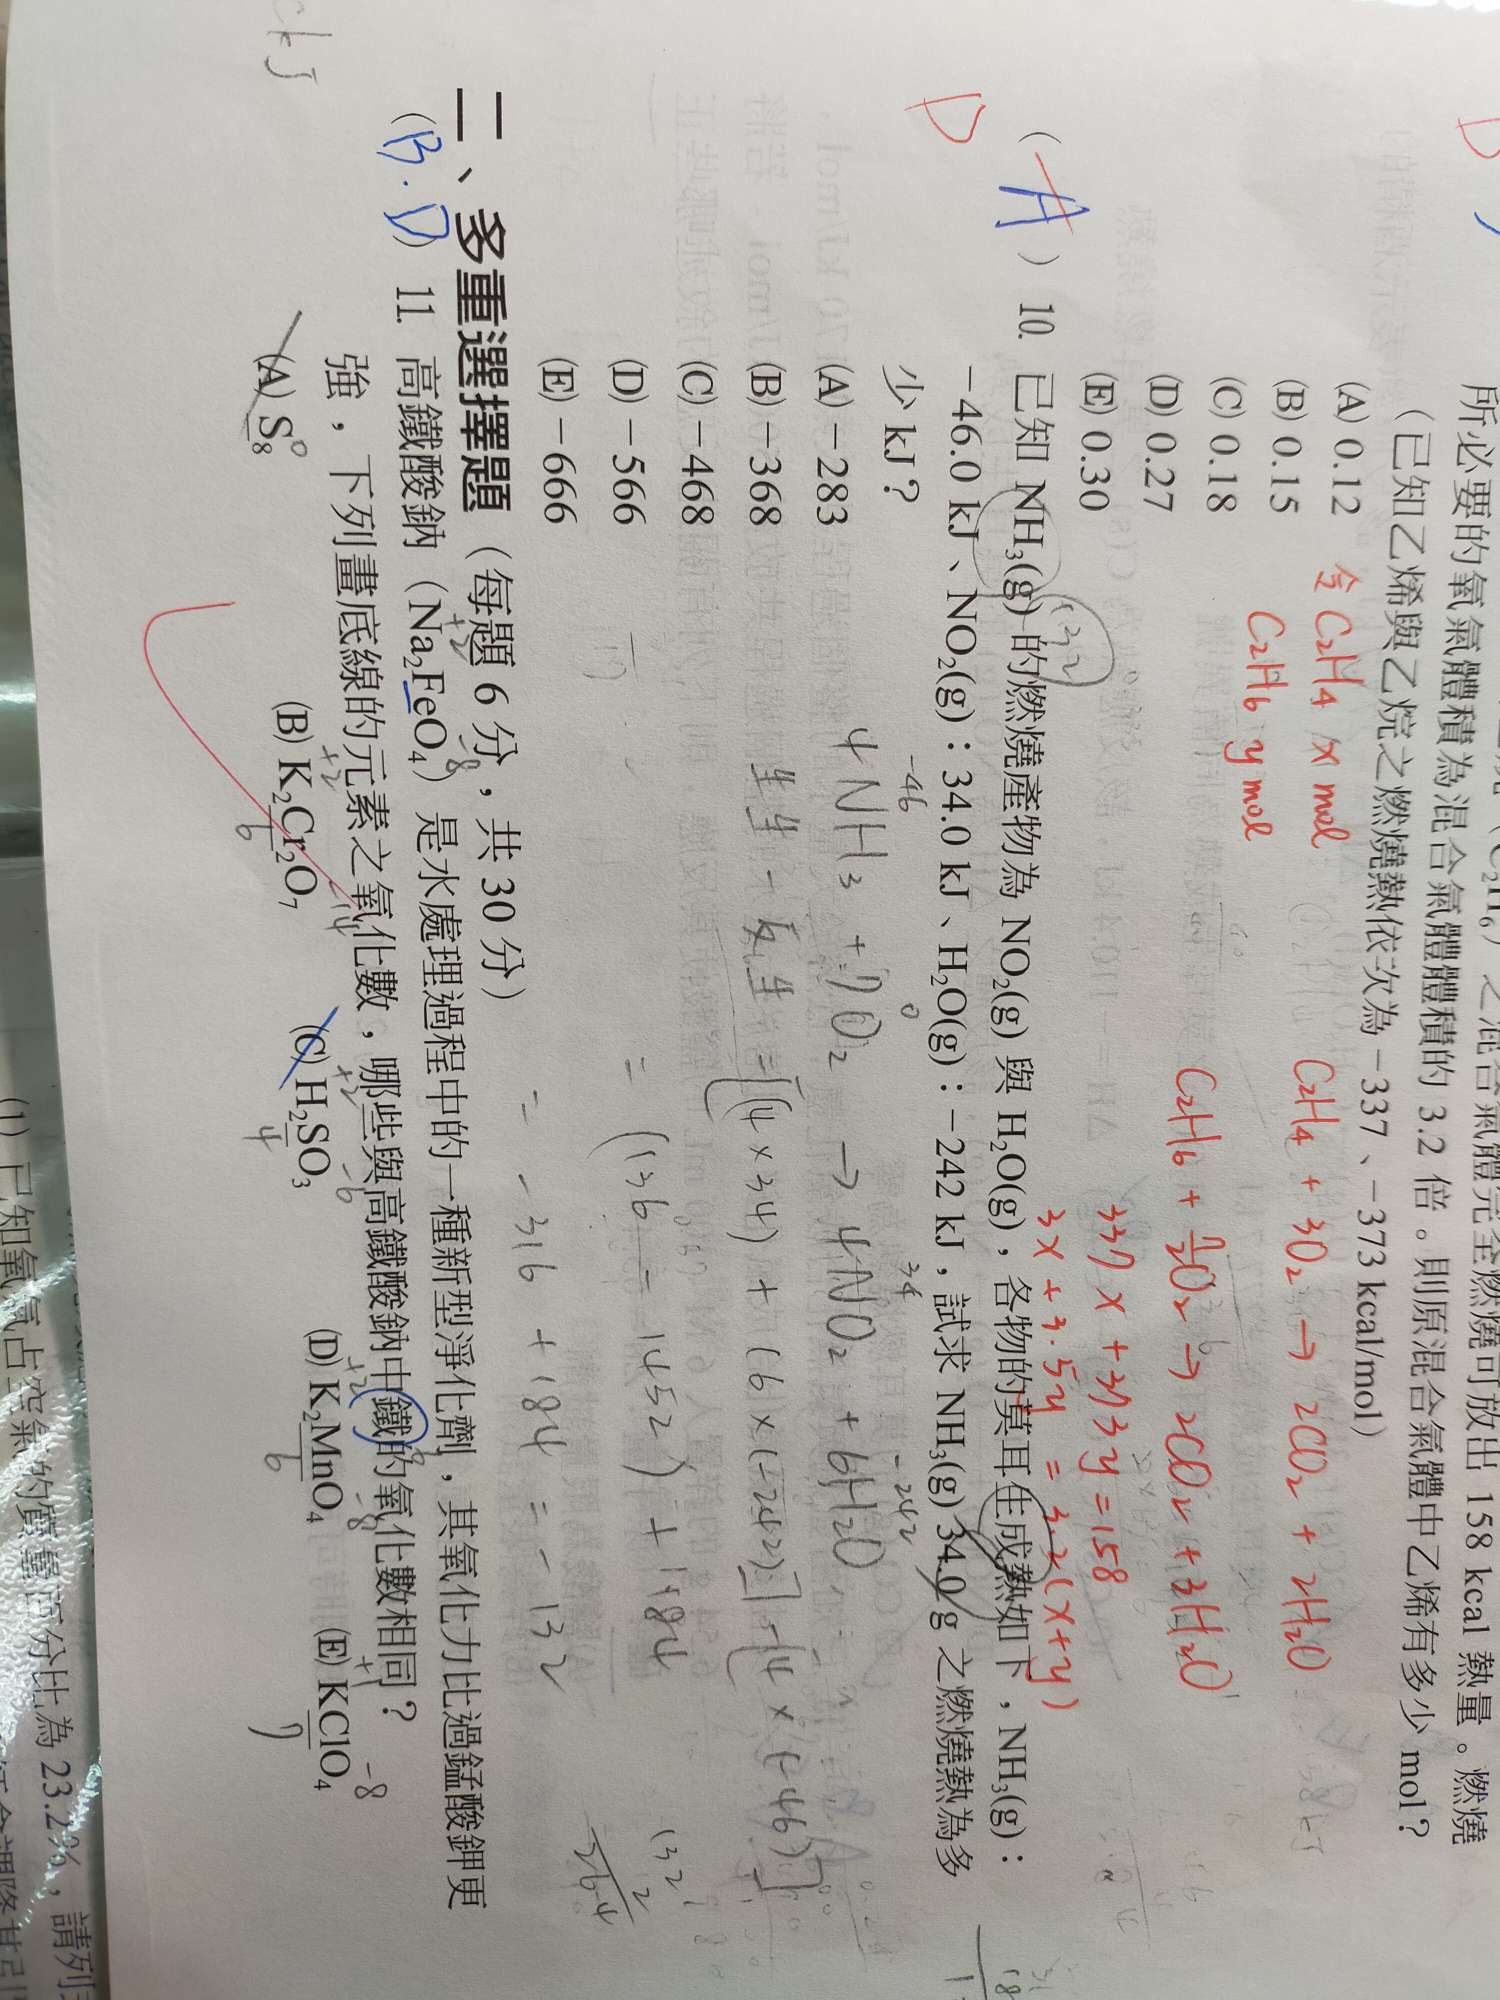 所必要的氧氣體積為混合氣體體積的 3.2 倍。則原混合氣體中乙烯有多少 mol？
（已知乙烯與乙烷之燃燒熱依次為 −337、−373 kcal/mol）
(A) 0.12
(B) 0.15
(C) 0.18
(D) 0.27
(E) 0.30
令 C₂H₄ x mol
C₂H₆ y mol
C₂H₄ + 3O₂ → 2CO₂ + 2H₂O
C₂H₆ + 7/2 O₂ → 2CO₂ + 3H₂O
337x + 373y = 158
3x + 3.5y = 3.2(x+y)
D
（A）10. 已知 NH₃(g) 的燃燒產物為 NO₂(g) 與 H₂O(g)，各物的莫耳生成熱如下，NH₃(g)：
−46.0 kJ、NO₂(g)：34.0 kJ、H₂O(g)：−242 kJ，試求 NH₃(g) 34.0 g 之燃燒熱為多
少 kJ？
(A) −283
(B) −368
(C) −468
(D) −566
(E) −666
-46 0 34 -242
4NH₃ + 7O₂ → 4NO₂ + 6H₂O
= [(4×34) + (6×(-242)] - [4×(-46)]
= (136 - 1452) + 184
= -1316 + 184 = -1132
二、多重選擇題（每題 6 分，共 30 分）
（B.D）11. 高鐵酸鈉（Na₂FeO₄）是水處理過程中的一種新型淨化劑，其氧化力比過錳酸鉀更
強，下列畫底線的元素之氧化數，哪些與高鐵酸鈉中鐵的氧化數相同？
(A) S₈ (B) K₂Cr₂O₇ (C) H₂SO₃ (D) K₂MnO₄ (E) KClO₄
0 +2 6 -14 +2 4 -6 +2 6 -8 +1 7 -8